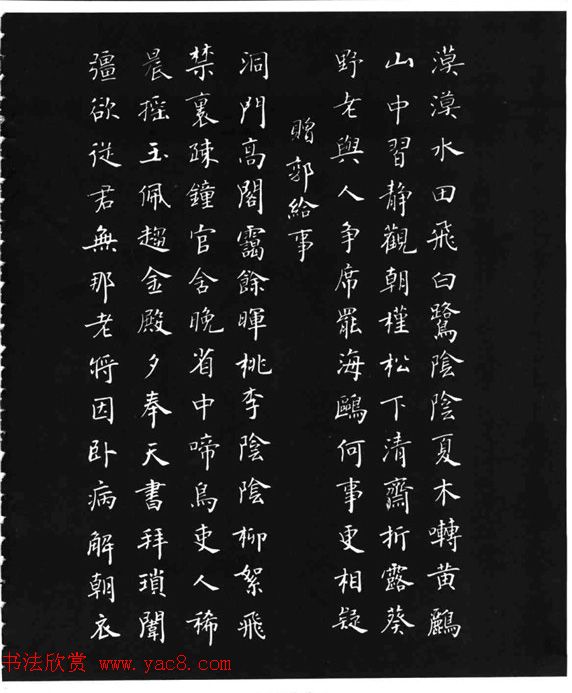 漠漠水田飛白鷺陰陰夏木囀黄鸝
山中習静觀朝槿松下清齋折露葵
野老與人争席罷海鷗何事更相疑
贈郭給事
洞門高閣靄餘暉桃李陰陰柳絮飛
禁裏疎鐘官舍晚省中啼鳥吏人稀
晨摇玉佩趨金殿夕奉天書拜瑣闈
彊欲從君無那老將因卧病解朝衣
书法欣赏 www.yac8.com